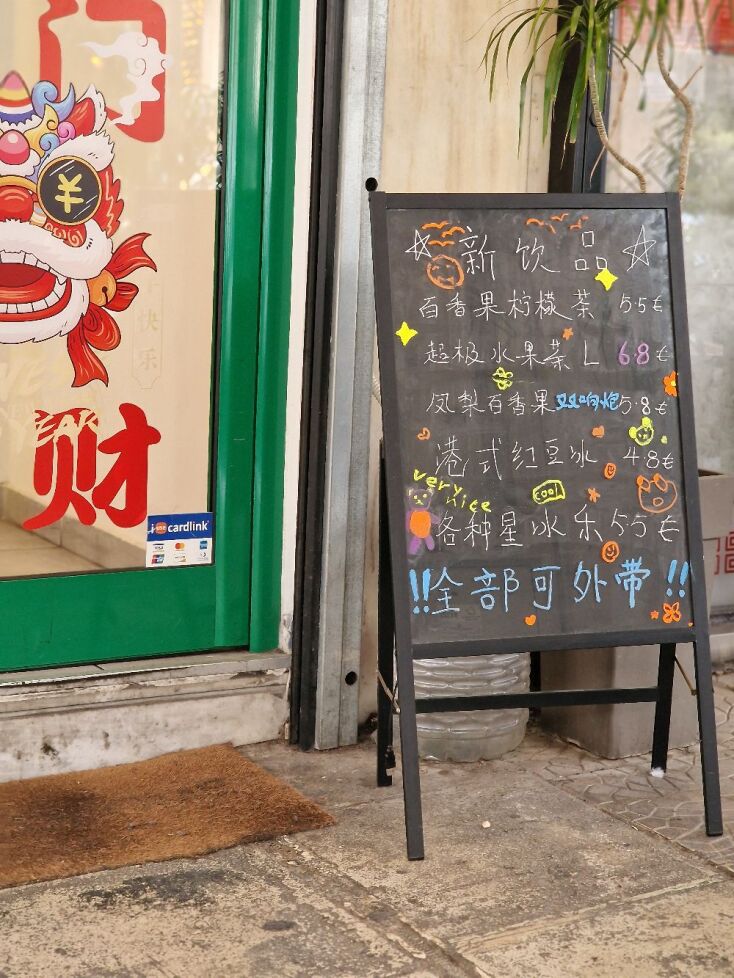 门
¥
快乐
YEAR
财
cardlink
VISA
新饮品
百香果柠檬茶 5.5€
超极水果茶 L 6.8€
凤梨百香果双响炮 5.8€
港式红豆冰 4.8€
very nice
cool
各种星冰乐 5.5€
!!全部可外带!!